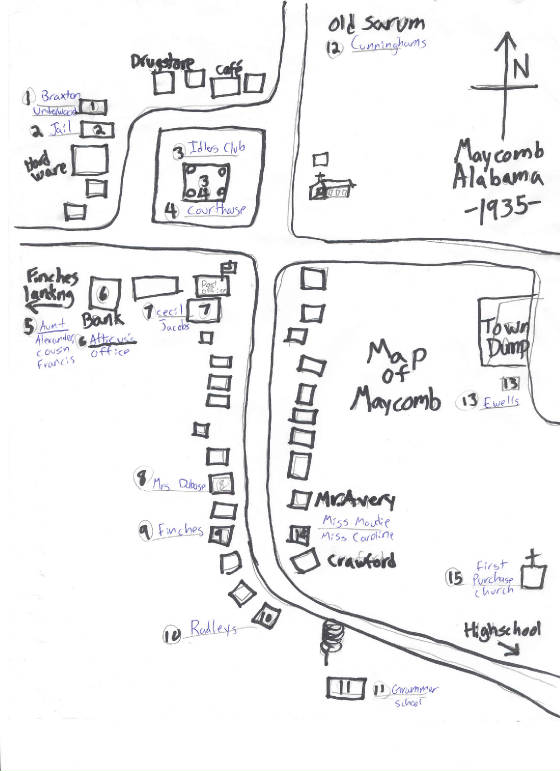 Old Sarum
12 Cunninghams
Drugstore
Café
N
1 Braxton
Underwood
1
2 Jail
2
Hard
ware
3 Idlers Club
3
4
4 Courthouse
Maycomb
Alabama
-1935-
Finches
landing
6
Bank
Post
office
7
7 Cecil
Jacobs
5 Aunt
Alexandra,
cousin
Francis
6 Atticus's
office
Town
Dump
13
13 Ewells
Map
of
Maycomb
8 Mrs. Dubose
8
Mr. Avery
9 Finches
9
Miss Maudie
Miss Caroline
14
Crawford
15 First
Purchase
church
10 Radleys
10
Highschool
11
11 Grammer
school